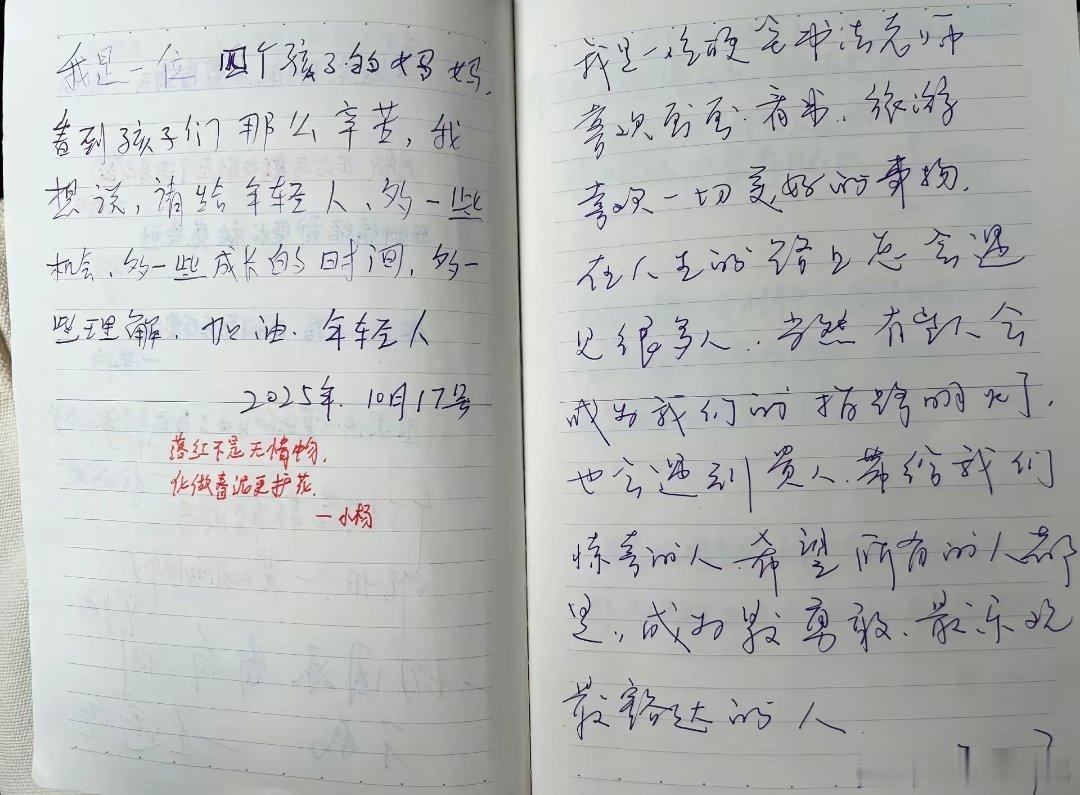 我是一位 四个孩子的妈妈,
看到孩子们那么辛苦,我
想说,请给年轻人、多一些
机会、多一些成长的时间,多一
些理解、加油、年轻人
2025年.10月17号
落红不是无情物,
化做春泥更护花.
—小杨
我是一位硬笔书法老师
喜欢画画、看书、旅游
喜欢一切美好的事物.
在人生的路上总会遇
见很多人、当然有些人会
成为我们的指路明灯,
也会遇到贵人、带给我们
惊喜的人、希望所有的人都
是,成为最勇敢、最乐观
最豁达的人